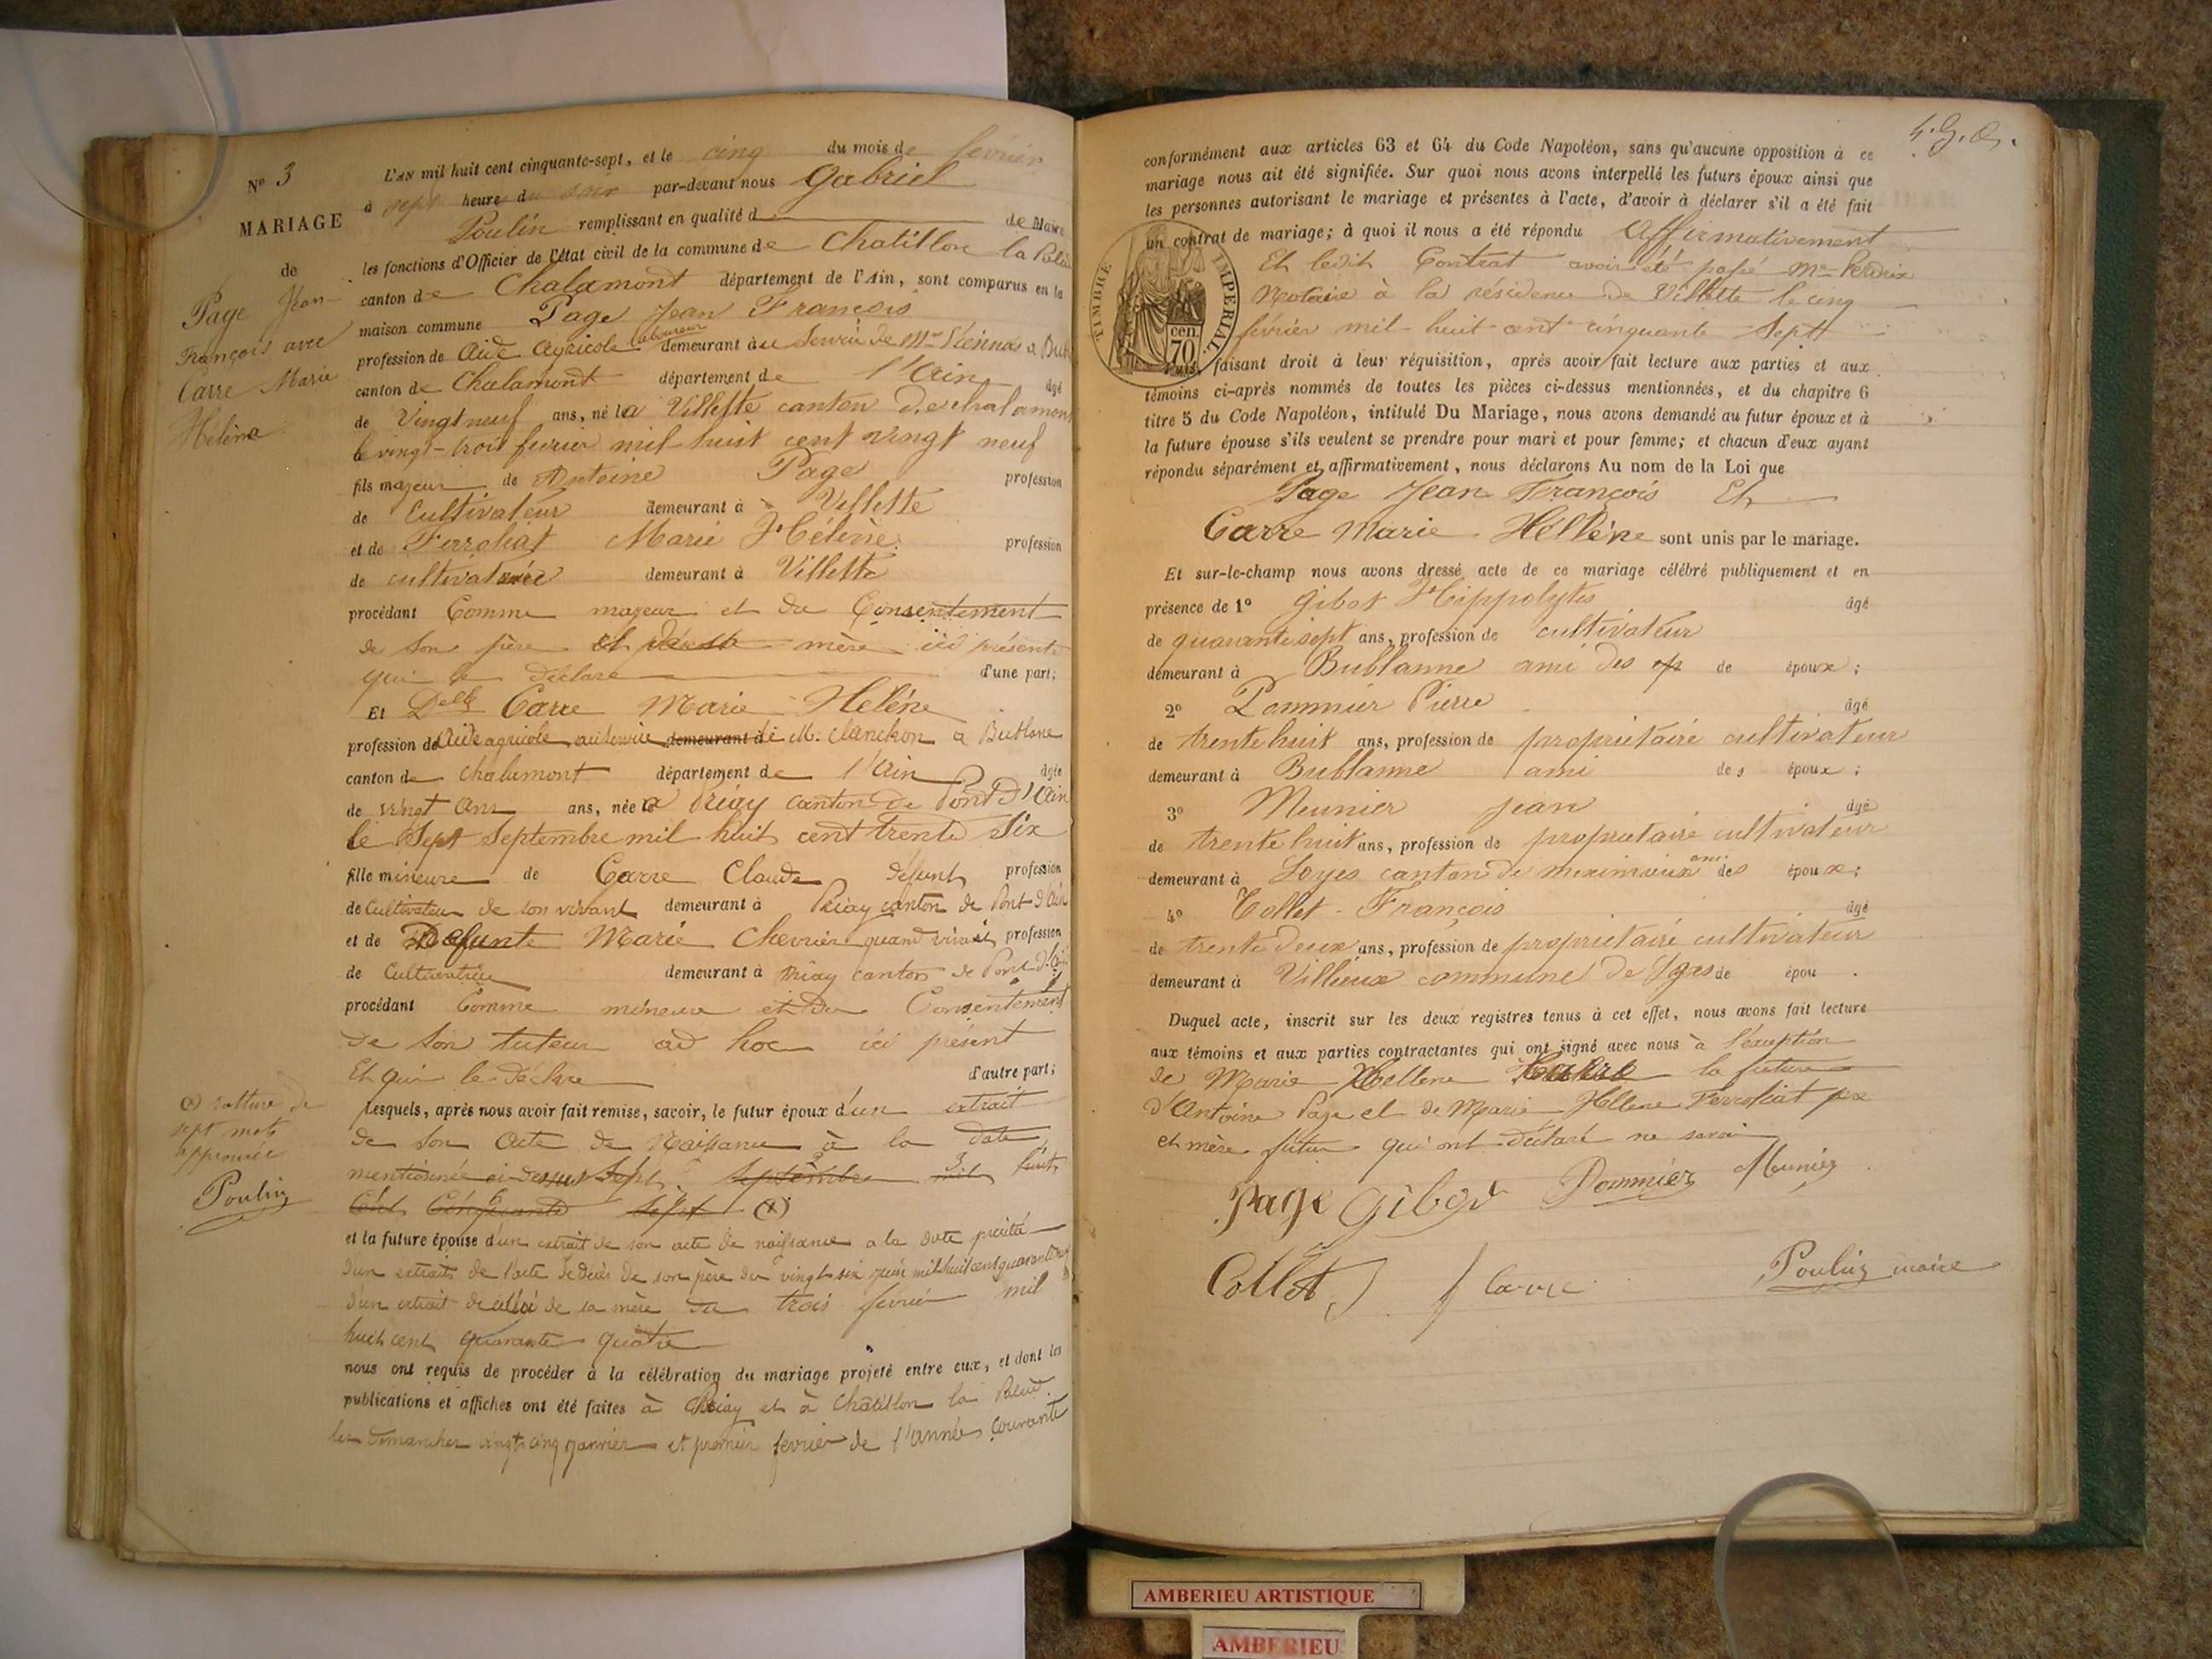 N° 3
MARIAGE
de
Page Jean
François avec
Carre Marie
Hélène
L'AN mil huit cent cinquante-sept, et le cinq du mois de février
à sept heures du soir par-devant nous Gabriel
Poulin remplissant en qualité de Maire
les fonctions d'Officier de l'état civil de la commune de Chatillon la Palud
canton de Chalamont département de l'Ain, sont comparus en la
maison commune Page Jean François
laboureur
profession de aide agricole demeurant au service de Mr à Bub
canton de Chalamont département de l'Ain âgé
de Vingt neuf ans, né à Villette canton de chalamont
le vingt-trois fevrier mil huit cent vingt neuf
fils majeur de Antoine Page profession
de Cultivateur demeurant à Villette
et de Ferroliat Marie Hélène profession
de cultivatrice demeurant à Villette
procédant Comme majeur et du Consentement
de son père et mère ici présents
qui le déclare d'une part;
Et Delle Carre Marie Heléne
profession de aide agricole au service demeurant à de M. Clanchon a Bublane
canton de Chalamont département de l'Ain âgée
de vingt ans ans, née à Priay canton de Pont d'Ain
le Sept Septembre mil huit cent trente Six
fille mineure de Carre Claude défunt profession
de Cultivateur de son vivant demeurant à Priay canton de Pont d'Ain
et de Defunte Marie Chevrier quand vivait profession
de Cultivatrice demeurant à Priay canton de Pont d'Ain
procédant Comme mineure et du Consentement
de son tuteur ad hoc ici présent
Et qui le déclare d'autre part;
Lesquels, après nous avoir fait remise, savoir, le futur époux d'un extrait
de son Acte de Naissance à la date
mentionnée ci-dessus Sept Septembre mil huit
Cent Cinquante Sept (x)
(x) rature de
sept mots
approuvée
Poulin
et la future épouse d'un extrait de son acte de naissance a la date précitée
d'un extrait de l'acte de décès de son père du vingt six juin mil huit cent quarante
d'un extrait de celui de sa mère du trois fevrier mil
huit cent quarante quatre
nous ont requis de procéder à la célébration du mariage projeté entre eux, et dont les
publications et affiches ont été faites à Priay et à Chatillon la Palud
les dimanches vingt cinq janvier et premier fevrier de l'année courante
conformément aux articles 63 et 64 du Code Napoléon, sans qu'aucune opposition à ce
mariage nous ait été signifiée. Sur quoi nous avons interpellé les futurs époux ainsi que
les personnes autorisant le mariage et présentes à l'acte, d'avoir à déclarer s'il a été fait
un contrat de mariage; à quoi il nous a été répondu Affirmativement
Et ledit Contrat avoir été passé Me Perdrix
Notaire à la résidence de Villette le cinq
février mil huit cent cinquante Sept
TIMBRE IMPERIAL
70 cen.
Puis, faisant droit à leur réquisition, après avoir fait lecture aux parties et aux
témoins ci-après nommés de toutes les pièces ci-dessus mentionnées, et du chapitre 6
titre 5 du Code Napoléon, intitulé Du Mariage, nous avons demandé au futur époux et à
la future épouse s'ils veulent se prendre pour mari et pour femme; et chacun d'eux ayant
répondu séparément et affirmativement, nous déclarons Au nom de la Loi que
Page Jean François Et
Carre Marie Hélléne sont unis par le mariage.
Et sur-le-champ nous avons dressé acte de ce mariage célébré publiquement et en
présence de 1° Gibot Hippolytes âgé
de quarante sept ans, profession de cultivateur
demeurant à Bublanne ami des ep de époux;
2° Pommier Pierre âgé
de trente huit ans, profession de proprietaire cultivateur
demeurant à Bublanne ami des époux;
3° Meunier Jean âgé
de trente huit ans, profession de proprietaire cultivateur
demeurant à Loyes canton de meximieux ami des époux;
4° Collet François âgé
de trente deux ans, profession de proprietaire cultivateur
demeurant à Villieux commune de Loyes de épou .
Duquel acte, inscrit sur les deux registres tenus à cet effet, nous avons fait lecture
aux témoins et aux parties contractantes qui ont signé avec nous à l'éxception
de Marie Hellene Carre la future
d'Antoine Page et de Marie Hellene Ferroliat pere
et mère futur qui ont déclaré ne savoir
Page Gibot Pommier Meunier
Collet Carre Poulin maire
AMBERIEU ARTISTIQUE
AMBERIEU